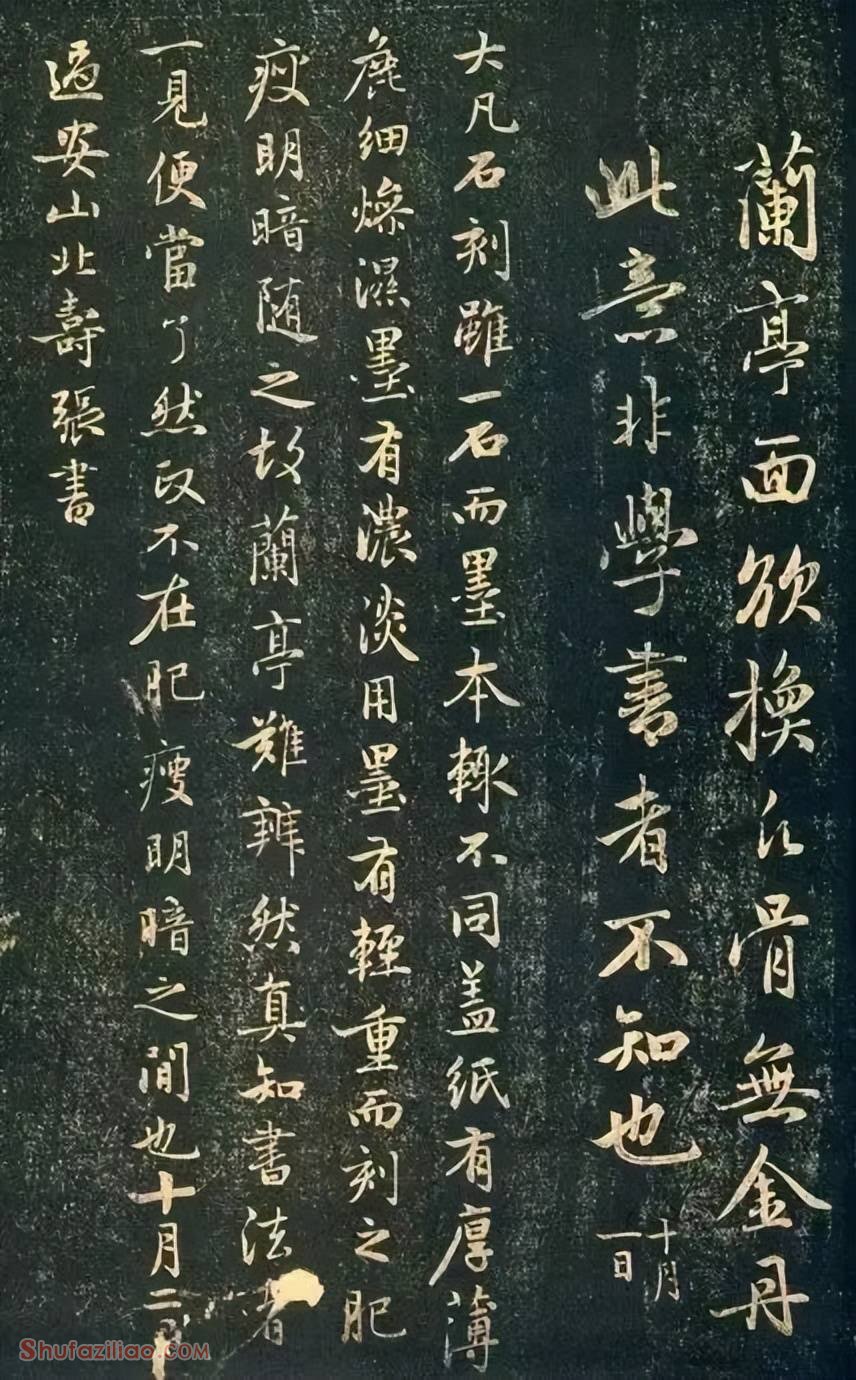 蘭亭面欲換凡骨無金丹
此意非學書者不知也十月
一日
大凡石刻雖一石而墨本輒不同盖紙有厚薄
麁細燥濕墨有濃淡用墨有輕重而刻之肥
瘦明暗随之故蘭亭難辨然真知書法者
一見便當了然政不在肥瘦明暗之間也十月二日
過安山北壽張書
Shufaziliao.com